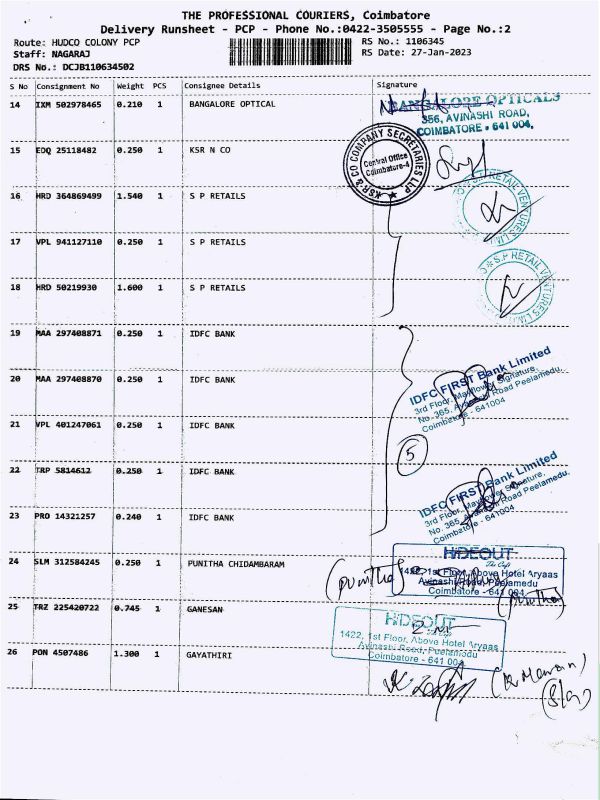 THE PROFESSIONAL COURIERS, Coimbatore
Delivery Runsheet - PCP - Phone No.:0422-3505555 - Page No.:2
Route: HUDCO COLONY PCP
RS No.: 1106345
Staff: NAGARAJ
RS Date: 27-Jan-2023
DRS No.: DCJB110634502
S No Consignment No Weight PCS Consignee Details Signature
14 IXM 502978465 0.210 1 BANGALORE OPTICAL
BANGALORE OPTICALS
356, AVINASHI ROAD,
COIMBATORE - 641 004.
15 EDQ 25118482 0.250 1 KSR N CO
KSR & CO COMPANY SECRETARIES LLP
Central Office
Coimbatore-4
16 HRD 364869499 1.540 1 S P RETAILS
S.P RETAIL VENTURES LIMITED
17 VPL 941127110 0.250 1 S P RETAILS
18 HRD 50219930 1.600 1 S P RETAILS
S.P RETAIL VENTURES LIMITED
19 MAA 297408871 0.250 1 IDFC BANK
20 MAA 297408870 0.250 1 IDFC BANK
IDFC FIRST Bank Limited
3rd Floor, Mayflower Signature,
No. 365, Avinashi Road Peelamedu,
Coimbatore - 641004
21 VPL 401247061 0.250 1 IDFC BANK
5
22 TRP 5814612 0.250 1 IDFC BANK
IDFC FIRST Bank Limited
3rd Floor, Mayflower Signature,
No. 365, Avinashi Road Peelamedu,
Coimbatore - 641004
23 PRO 14321257 0.240 1 IDFC BANK
24 SLM 312584245 0.250 1 PUNITHA CHIDAMBARAM
HIDEOUT
The Cafe
1422, 1st Floor, Above Hotel Aryaas
Avinashi Road, Peelamedu
Coimbatore - 641 004
(Punitha)
(Punitha)
25 TRZ 225420722 0.745 1 GANESAN
HIDEOUT
The Cafe
1422, 1st Floor, Above Hotel Aryaas
Avinashi Road, Peelamedu
Coimbatore - 641 004
26 PON 4507486 1.300 1 GAYATHIRI